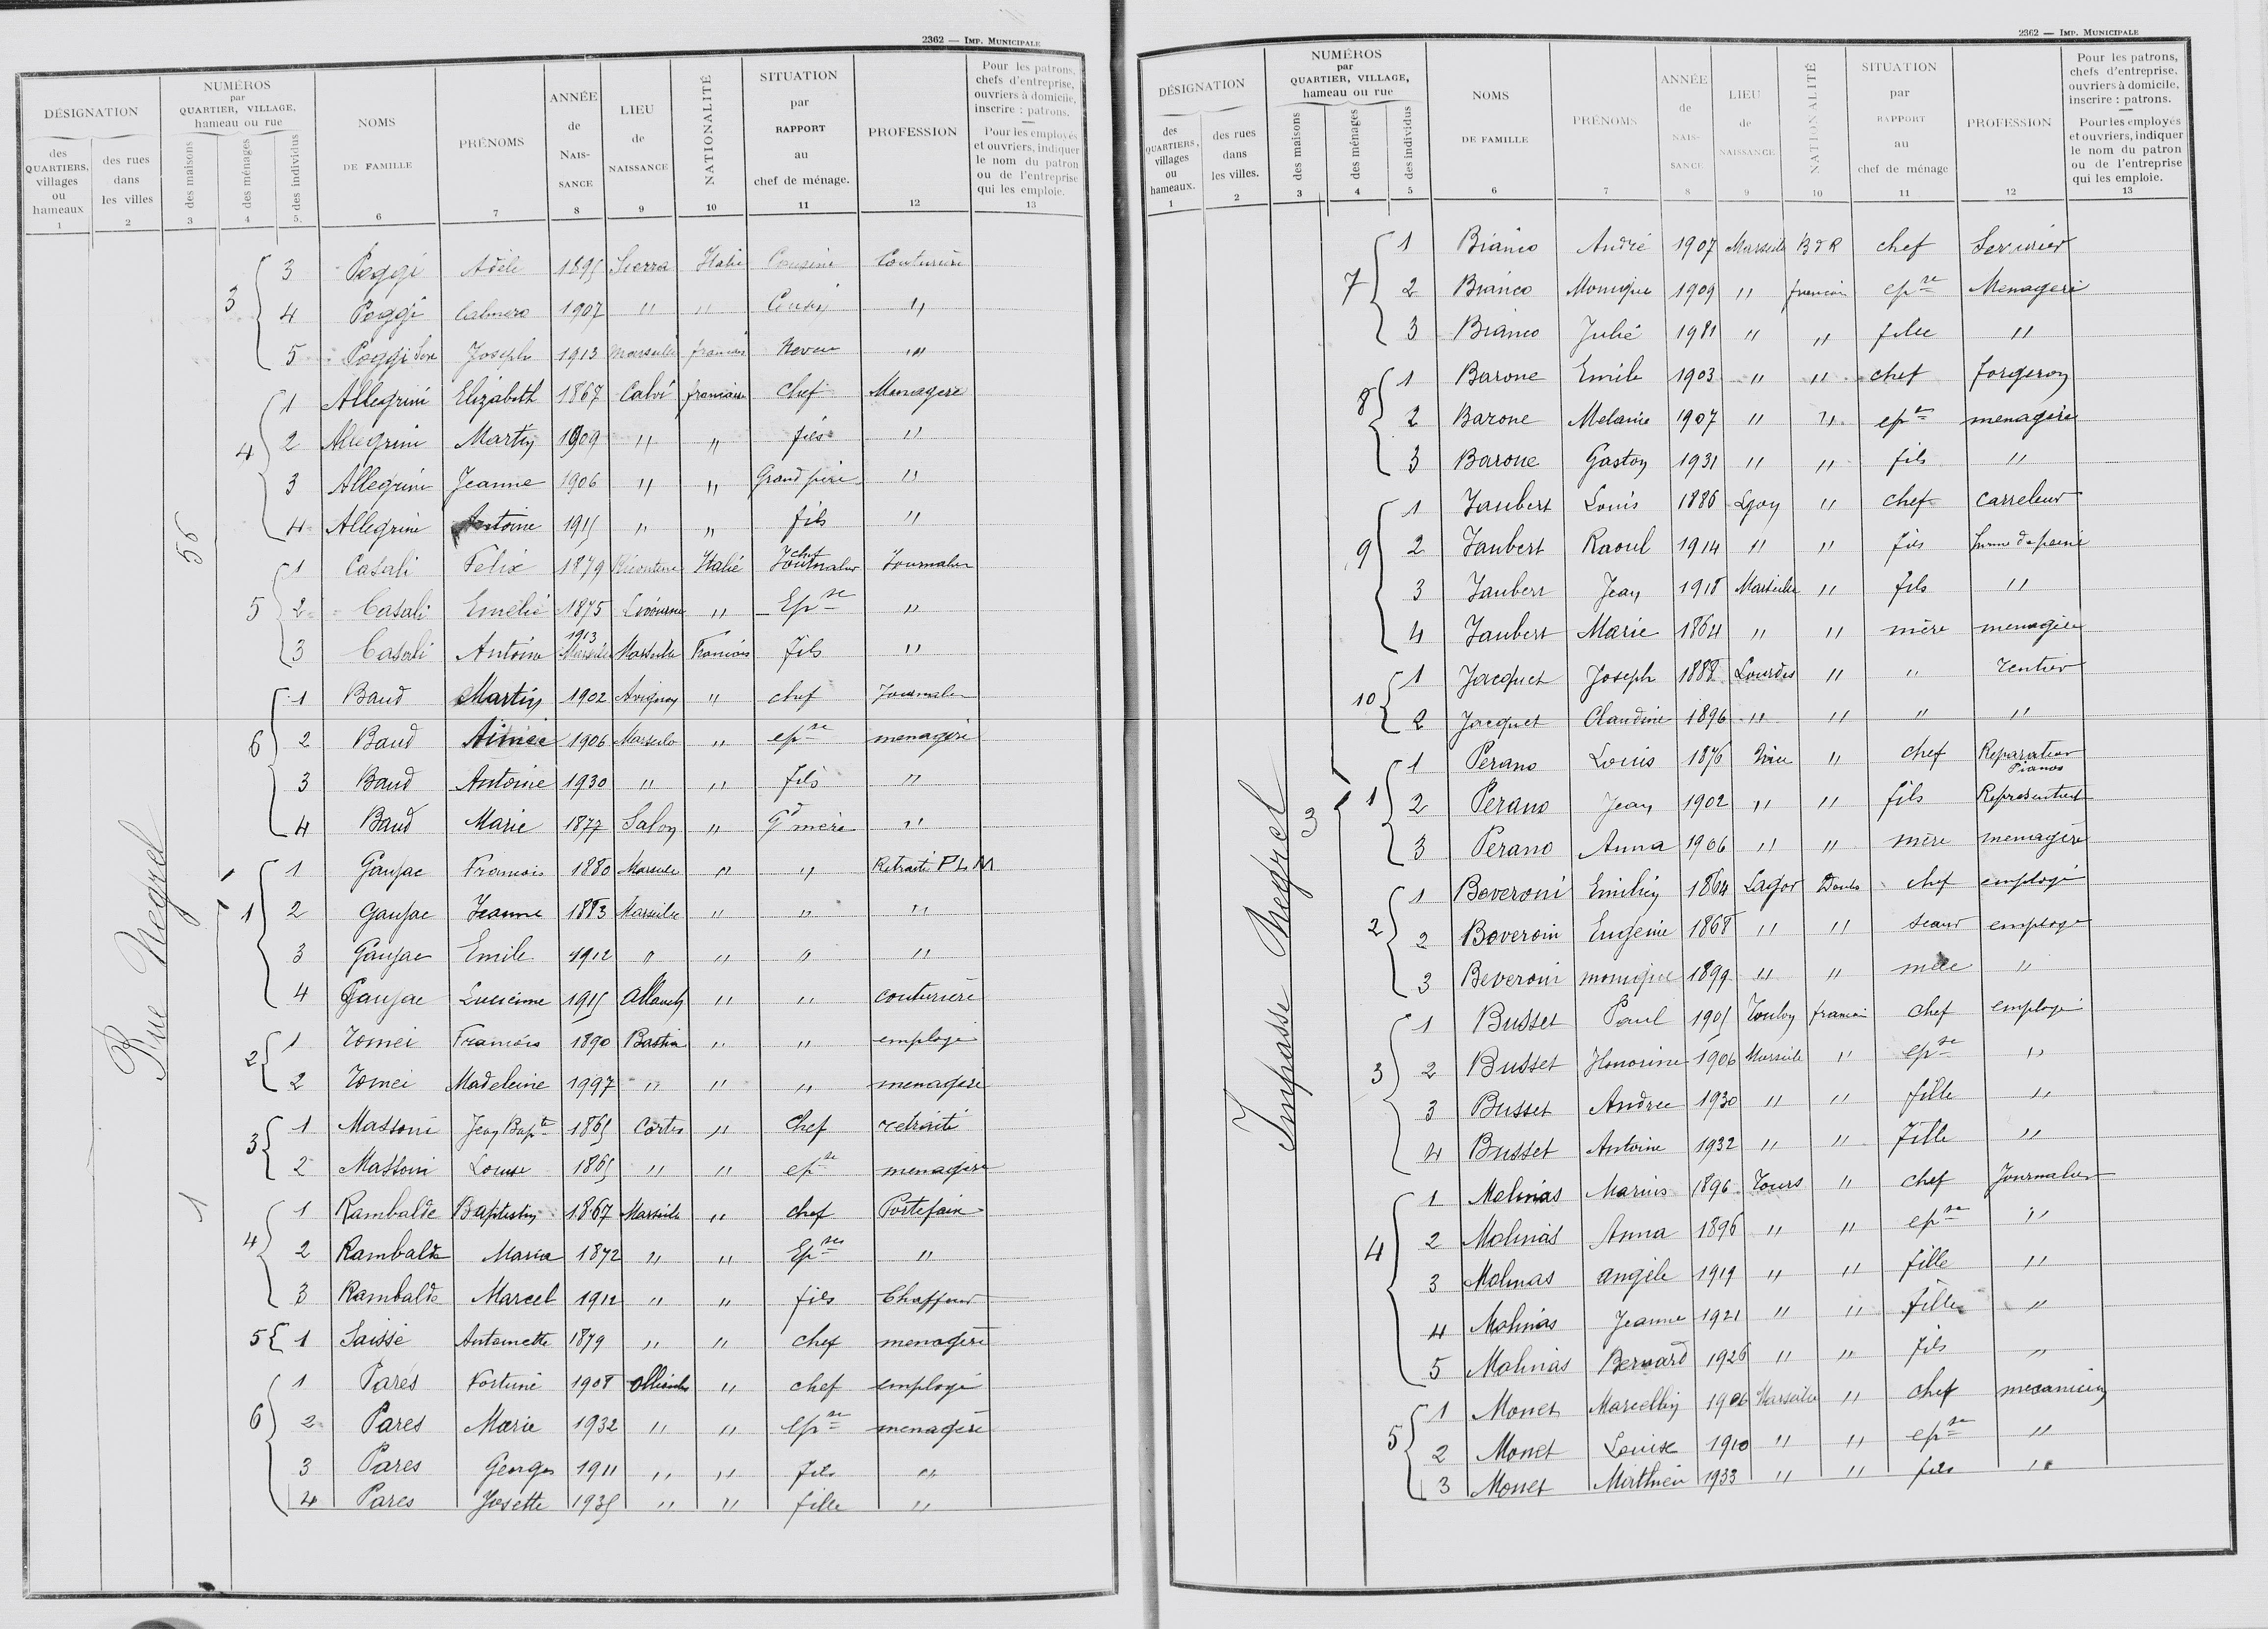 2362 — Imp. Municipale
DÉSIGNATION
des QUARTIERS, villages ou hameaux
1
des rues dans les villes
2
NUMÉROS par QUARTIER, VILLAGE, hameau ou rue
des maisons
3
des ménages
4
des individus
5
NOMS DE FAMILLE
6
PRÉNOMS
7
ANNÉE de NAIS-SANCE
8
LIEU de NAISSANCE
9
NATIONALITÉ
10
SITUATION par RAPPORT au chef de ménage.
11
PROFESSION
12
Pour les patrons, chefs d'entreprise, ouvriers à domicile, inscrire : patrons.
Pour les employés et ouvriers, indiquer le nom du patron ou de l'entreprise qui les emploie.
13
Rue Negrel
56
3 3 Poggi Adèle 1895 Italie Cousine Couturière
4 Poggi 1907 " " "
5 Poggi Joseph 1913 Marseille francais Neveu "
4 1 Allegrini Elizabeth 1867 Calvi francaise chef Menagere
2 Allegrini Martin 1909 " " fils "
3 Allegrini Jeanne 1906 " " Grand père "
4 Allegrini Antoine 1915 " " fils "
5 1 Casali Felix 1879 Italie chef Journalier Journalier
2 Casali Emélie 1875 Livourne " Epse "
3 Casali Antoine 1913 Marseille Marseille Francais fils "
6 1 Baud Martin 1902 Avignon " chef Journalier
2 Baud Aimée 1906 Marseille " epse menagère
3 Baud Antoine 1930 " " fils "
4 Baud Marie 1877 Salon " Gd mère "
1
1 1 Gaujac Francois 1880 Marseille " " Retraité P L M
2 Gaujac Jeanne 1883 Marseille " " "
3 Gaujac Emile 1912 " " " "
4 Gaujac Lucienne 1915 Allauch " " couturière
2 1 Tomei Francois 1890 Bastia " " employé
2 Tomei Madeleine 1997 " " " menagère
3 1 Massoni Jean Bapte 1865 Corte " Chef retraité
2 Massoni Louise 1865 " " epse menagère
4 1 Rambalde Baptistin 1867 Marseille " chef Portefaix
2 Rambalde Maria 1872 " " Epse "
3 Rambalde Marcel 1912 " " fils Chauffeur
5 1 Saisse Antoinette 1879 " " chef menagère
6 1 Pares Fortuné 1908 Ollioules " chef employé
2 Pares Marie 1932 " " epse menagère
3 Pares Georges 1911 " " fils "
4 Pares Josette 1935 " " fille "
2362 — Imp. Municipale
DÉSIGNATION
des QUARTIERS, villages ou hameaux.
1
des rues dans les villes.
2
NUMÉROS par QUARTIER, VILLAGE, hameau ou rue
des maisons
3
des ménages
4
des individus
5
NOMS DE FAMILLE
6
PRÉNOMS
7
ANNÉE de NAIS-SANCE
8
LIEU de NAISSANCE
9
NATIONALITÉ
10
SITUATION par RAPPORT au chef de ménage
11
PROFESSION
12
Pour les patrons, chefs d'entreprise, ouvriers à domicile, inscrire : patrons.
Pour les employés et ouvriers, indiquer le nom du patron ou de l'entreprise qui les emploie.
13
Impasse Negrel
7 1 Bianco André 1907 Marseille B d R chef Serrurier
2 Bianco Monique 1909 " francais epse Menagere
3 Bianco Julié 1981 " " fille "
8 1 Barone Emile 1903 " " chef forgeron
2 Barone Melanie 1907 " " epse menagère
3 Barone Gaston 1931 " " fils "
9 1 Jaubert Louis 1886 Lyon " chef carreleur
2 Jaubert Raoul 1914 " " fils homme de peine
3 Jaubert Jean 1918 Marseille " fils "
4 Jaubert Marie 1864 " " mère menagère
10 1 Jacquet Joseph 1888 Lourdes " " rentier
2 Jacquet Claudine 1896 " " " "
3
1 1 Perano Louis 1876 Nice " chef Reparateur Pianos
2 Perano Jean 1902 " " fils Representant
3 Perano Anna 1906 " " mère menagère
2 1 Boveroni Emilien 1864 Lagor Doubs chef employé
2 Boveroni Eugenie 1868 " " employé
3 Beveroni monique 1899 " " mère "
3 1 Busset Paul 1905 Toulon francais chef employé
2 Busset Honorine 1906 Marseille " epse "
3 Busset Andree 1930 " " fille "
4 Busset Antoine 1932 " " Fille "
4 1 Molinas Marius 1896 Tours " chef Journalier
2 Molinas Anna 1896 " " epse "
3 Molinas angèle 1919 " " fille "
4 Molinas Jeanne 1921 " " fille "
5 Molinas Bernard 1926 " " fils "
5 1 Monet Marcellin 1906 Marseille " chef mecanicien
2 Monet Louise 1910 " " epse "
3 Monet Mathieu 1933 " " fils "